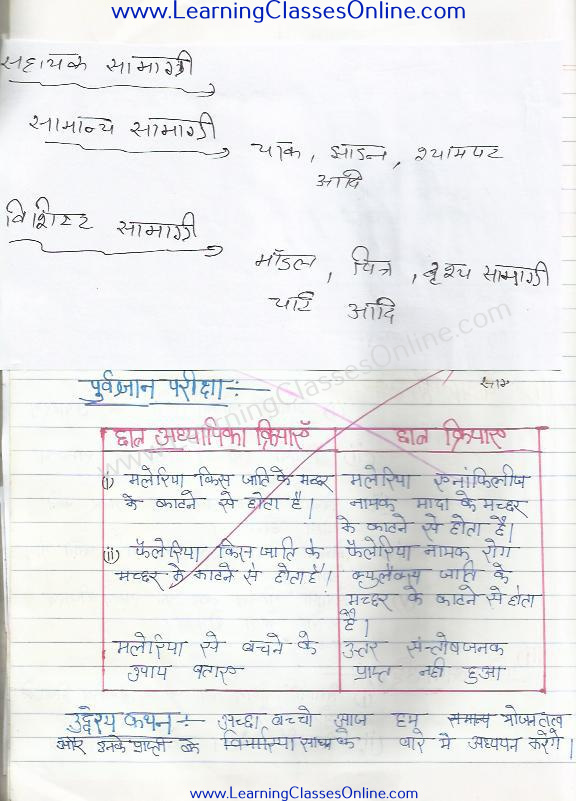 www.LearningClassesOnline.com
सहायक सामाग्री
सामान्य सामाग्री
चाक, झाडन, श्यामपट
आदि
विशिष्ट सामाग्री
मॉडल, चित्र, दृश्य सामाग्री
चार्ट आदि
www.LearningClassesOnline.com
पुर्वज्ञान परीक्षा :-
छात्र अध्यापिका क्रियाएँ
छात्र क्रियाए
(i) मलेरिया किस जाति के मच्छर
के काटने से होता है।
मलेरिया एनांफिलीज
नामक मादा के मच्छर
के काटने से होता है।
(ii) फैलेरिया किस जाति के
मच्छर के काटने से होता है।
फैलेरिया नामक रोग
क्यूलैक्स जाति के
मच्छर के काटने से होता
है।
मलेरिया से बचने के
उपाय बताए
उत्तर संन्तोषजनक
प्राप्त नही हुआ
उद्देश्य कथन :- अच्छा बच्चो आज हम सामान्य
और उनके के बारे मे अध्ययन करेंगे।
www.LearningClassesOnline.com